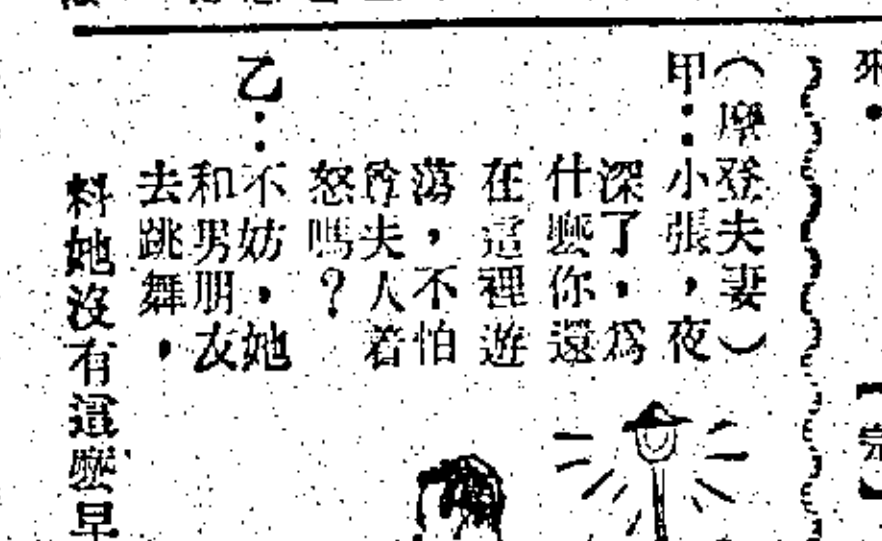 來。
【宗】
（摩登夫妻）
甲：小張，夜
深了，為
什麼你還
在這裡遊
蕩，不怕
令夫人着
怒嗎？
乙：不妨，她
和男朋友
去跳舞，
料她沒有這麼早